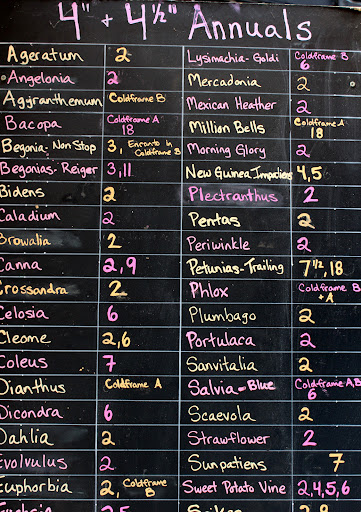 4" + 4½" Annuals
Ageratum 2
Angelonia 2
Aggranthemum Coldframe B
Bacopa Coldframe A
18
Begonia-Non Stop 3, Encanto in
Coldframe B
Begonias-Reiger 3,11
Bidens 2
Caladium 2
Browalia 2
Canna 2,9
Crossandra 2
Celosia 6
Cleome 2,6
Coleus 7
Dianthus Coldframe A
Dicondra 6
Dahlia 2
Evolvulus 2
Euphorbia 2, Coldframe
B
Lysimachia-Goldi Coldframe B
6
Mercadonia 2
Mexican Heather 2
Million Bells Coldframe A
18
Morning Glory 2
New Guinea Impatiens 4,5
Plectranthus 2
Pentas 2
Periwinkle 2
Petunias-Trailing 7½,18
Phlox Coldframe B
+A
Plumbago 2
Portulaca 2
Sanvitalia 2
Salvia-Blue Coldframe A,B
6
Scaevola 2
Strawflower 2
Sunpatiens 7
Sweet Potato Vine 2,4,5,6